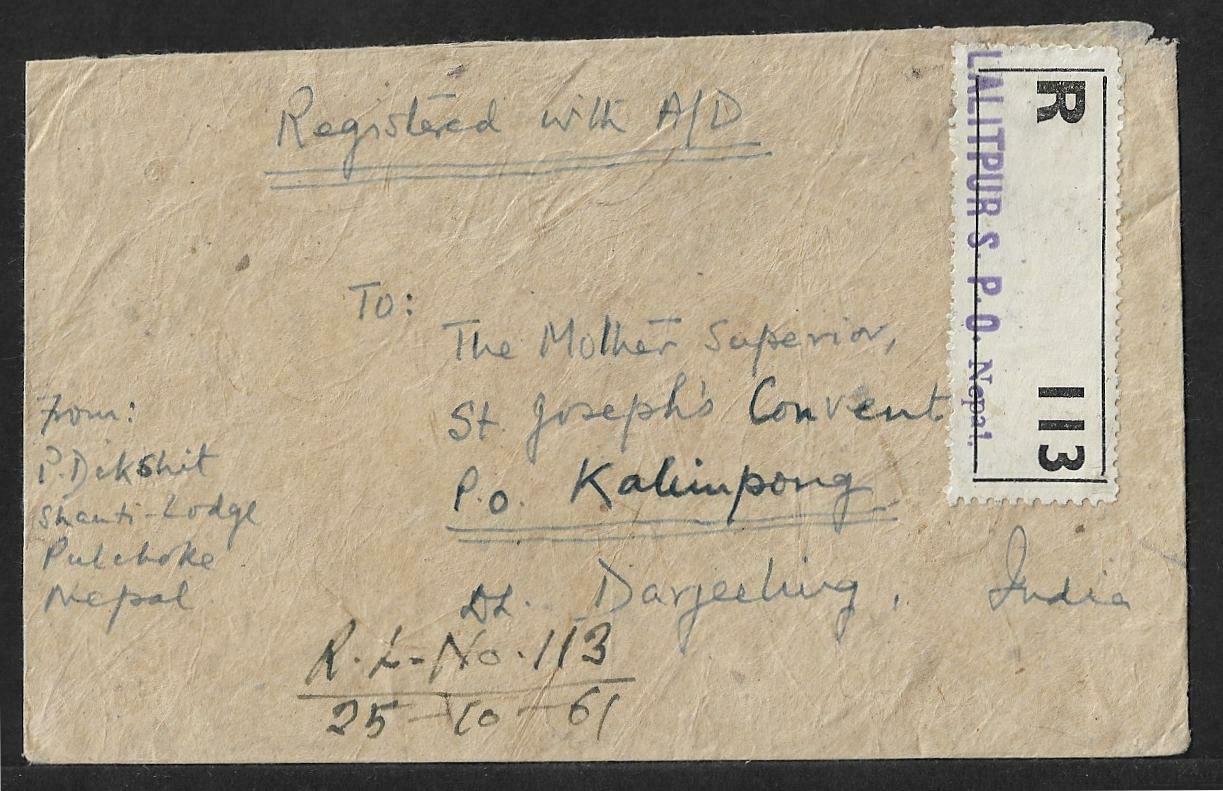 Registered with A/D
To:
The Mother Superior,
St. Joseph's Convent
P.O. Kalimpong
Dt. Darjeeling, India
From:
P. Dikshit
Shanti-Lodge
Pulchoke
Nepal
R.L-No.113
25-10-61
R 113
LALITPUR S. P. O. Nepal.